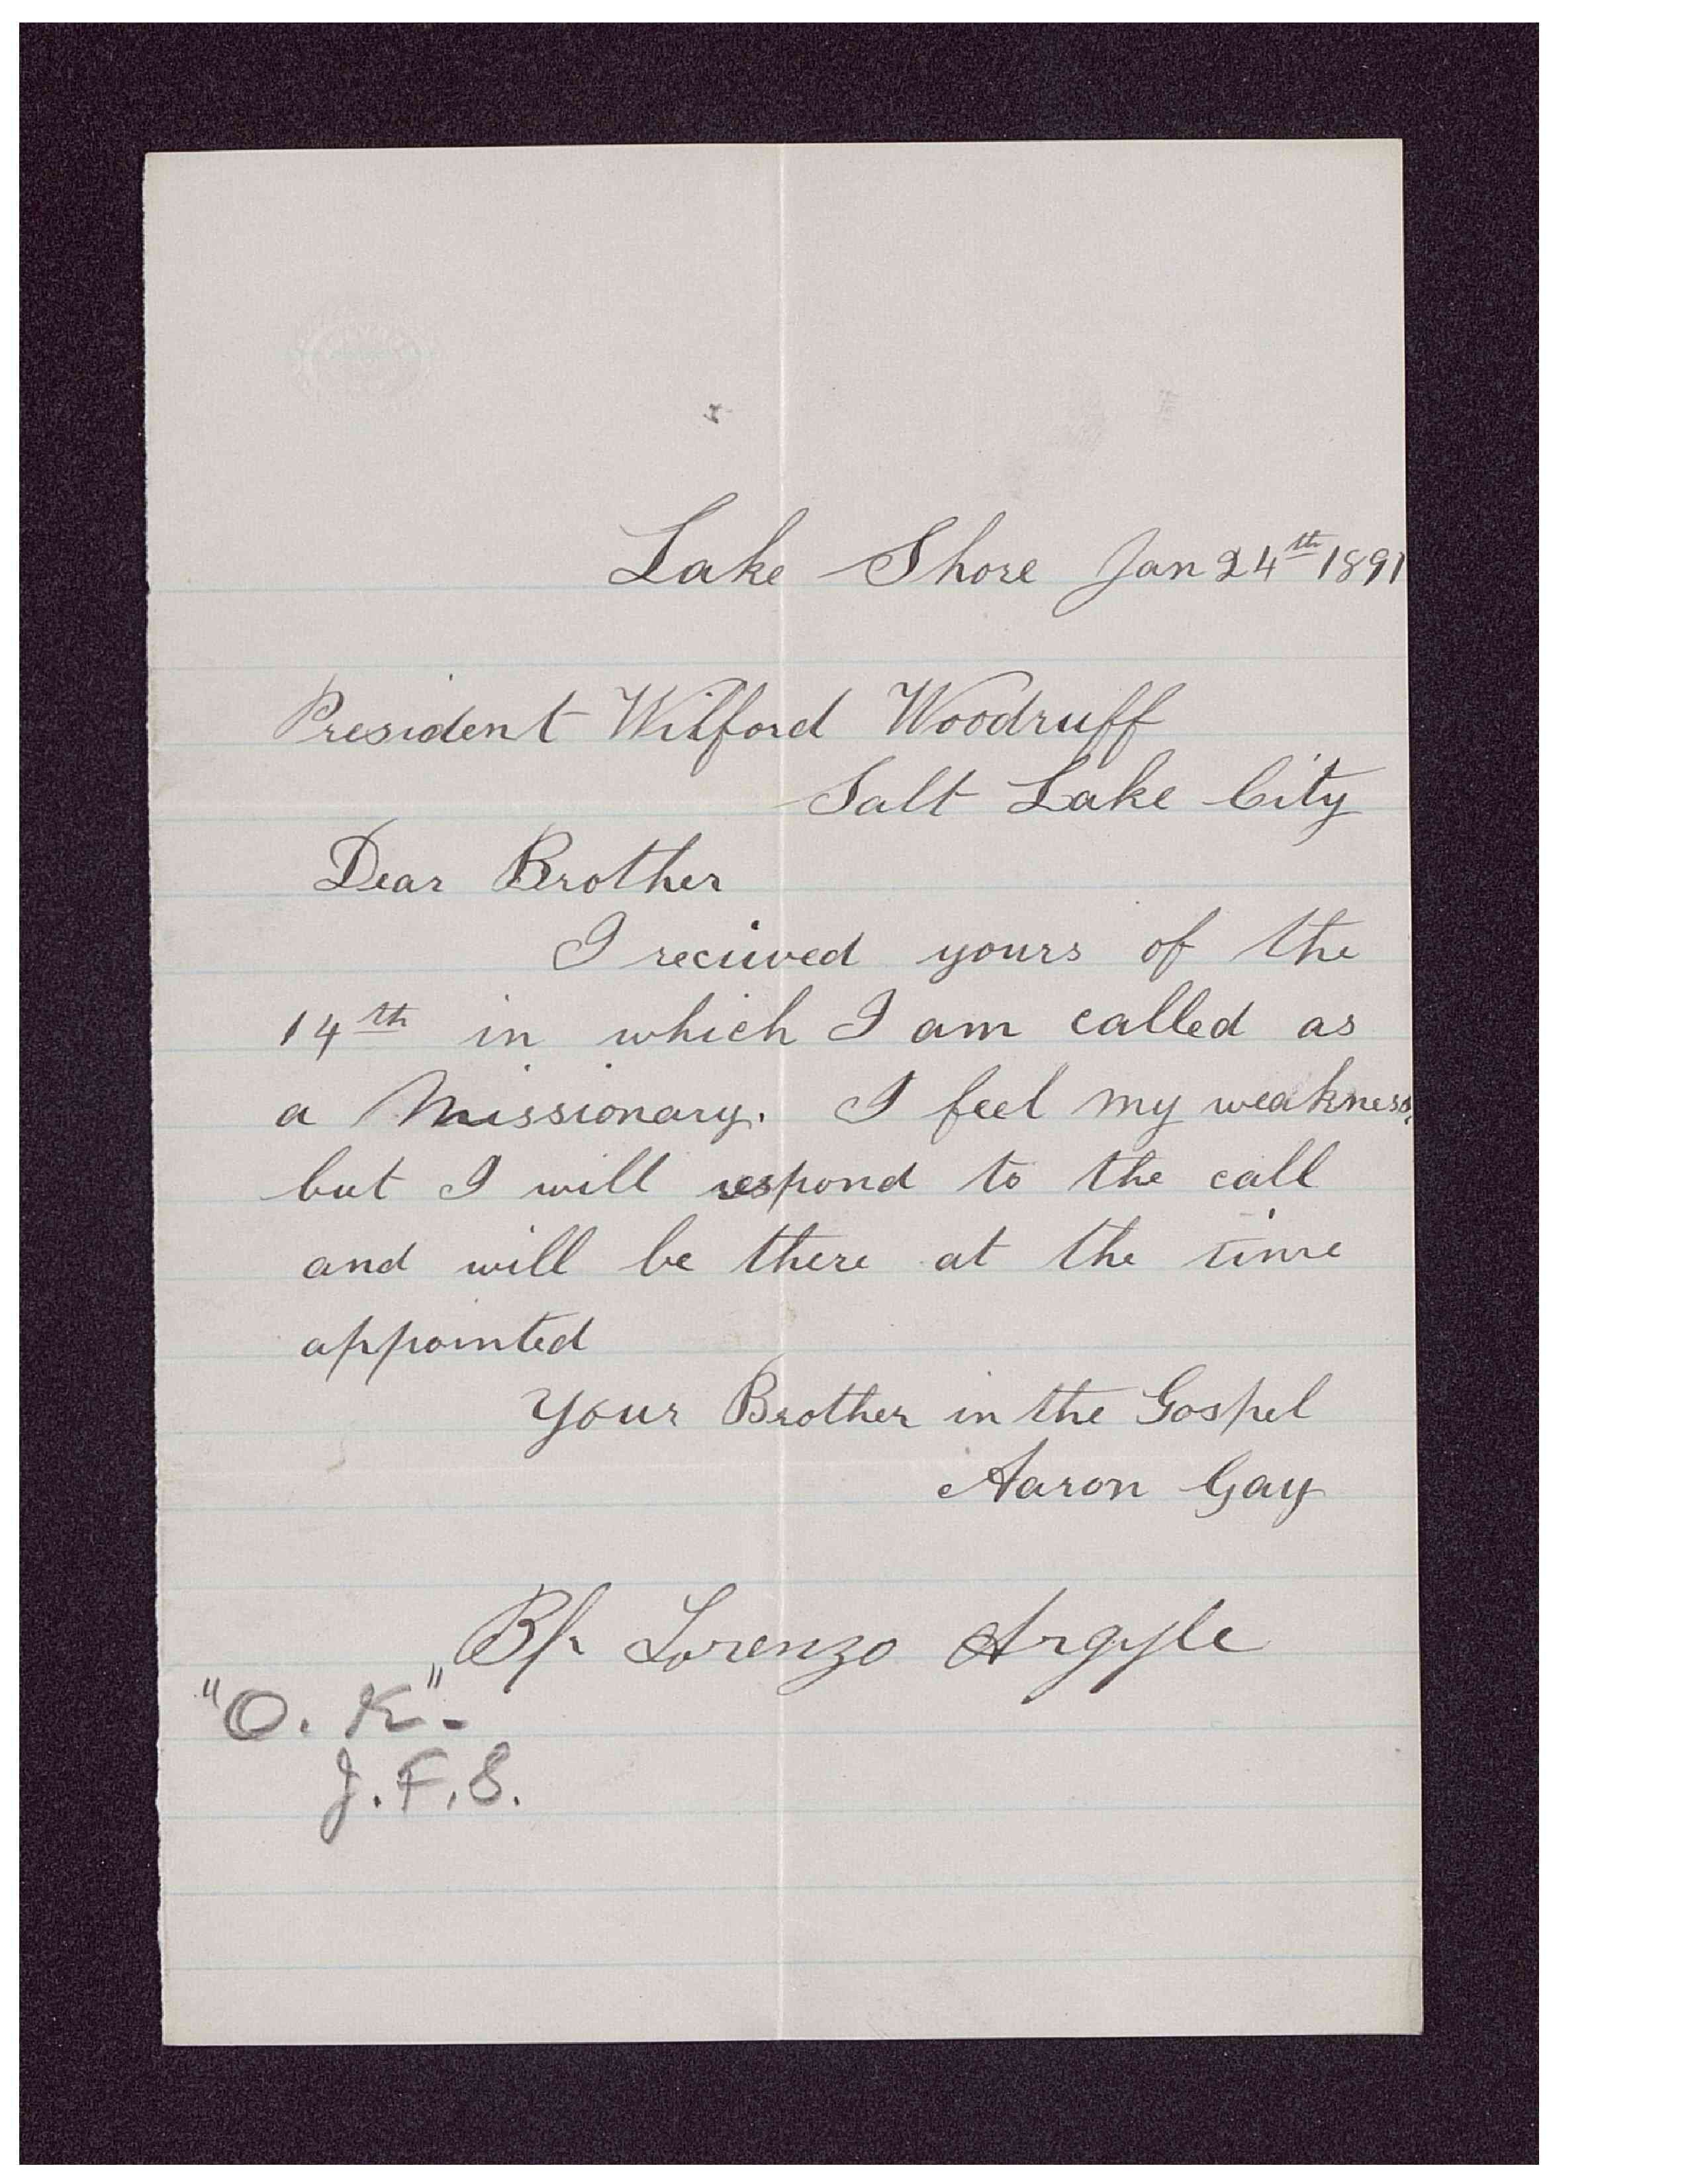 Lake Shore Jan 24th 1891
President Wilford Woodruff
Salt Lake City
Dear Brother
I recieved yours of the
14th in which I am called as
a Missionary. I feel my weakness,
but I will respond to the call
and will be there at the time
appointed
Your Brother in the Gospel
Aaron Gay
Bp Lorenzo Argyle
"O. K".
J. F. S.